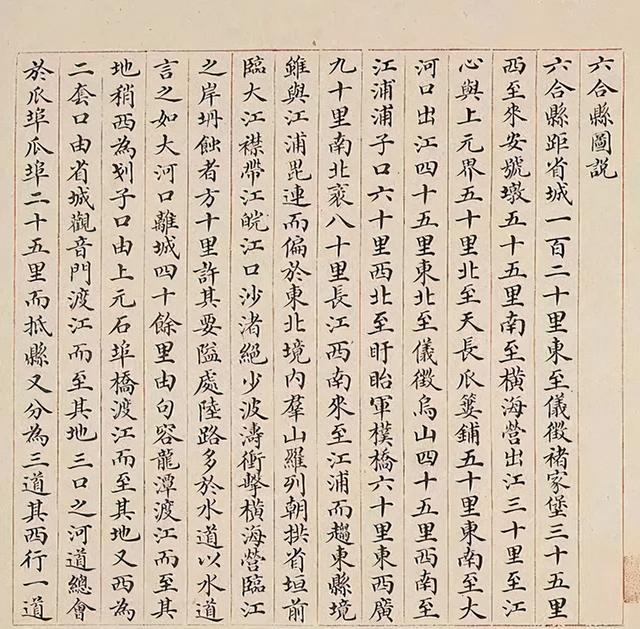 六合縣圖説
六合縣距省城一百二十里東至儀徵褚家堡三十五里
西至來安號墩五十五里南至橫海營出江三十里至江
心與上元界五十里北至天長瓜蔞鋪五十里東南至大
河口出江四十五里東北至儀徵烏山四十五里西南至
江浦浦子口六十里西北至盱眙軍樸橋六十里東西廣
九十里南北袤八十里長江西南來至江浦而趨東縣境
雖與江浦毘連而偏於東北境內羣山羅列朝拱省垣前
臨大江襟帶江皖江口沙渚絕少波濤衝擊橫海營臨江
之岸坍蝕者方十里許其要隘處陸路多於水道以水道
言之如大河口離城四十餘里由句容龍潭渡江而至其
地稍西為划子口由上元石埠橋渡江而至其地又西為
二套口由省城觀音門渡江而至其地三口之河道總會
於瓜埠瓜埠二十五里而抵縣又分為三道其西行一道